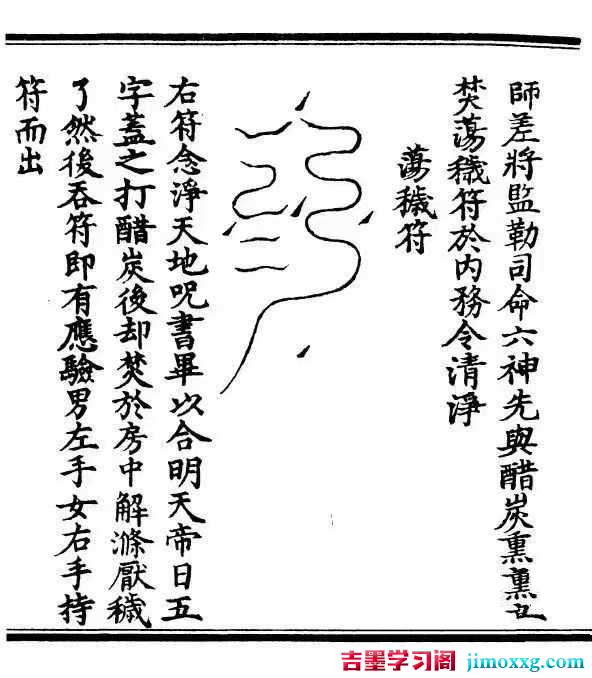 師差將監勒司命六神先與醋炭熏熏訖
焚蕩穢符於內務令清淨
蕩穢符
右符念淨天地呪書畢以合明天帝日五
字蓋之打醋炭後却焚於房中解滌厭穢
了然後吞符即有應驗男左手女右手持
符而出
吉墨学习阁 jimoxxg.com